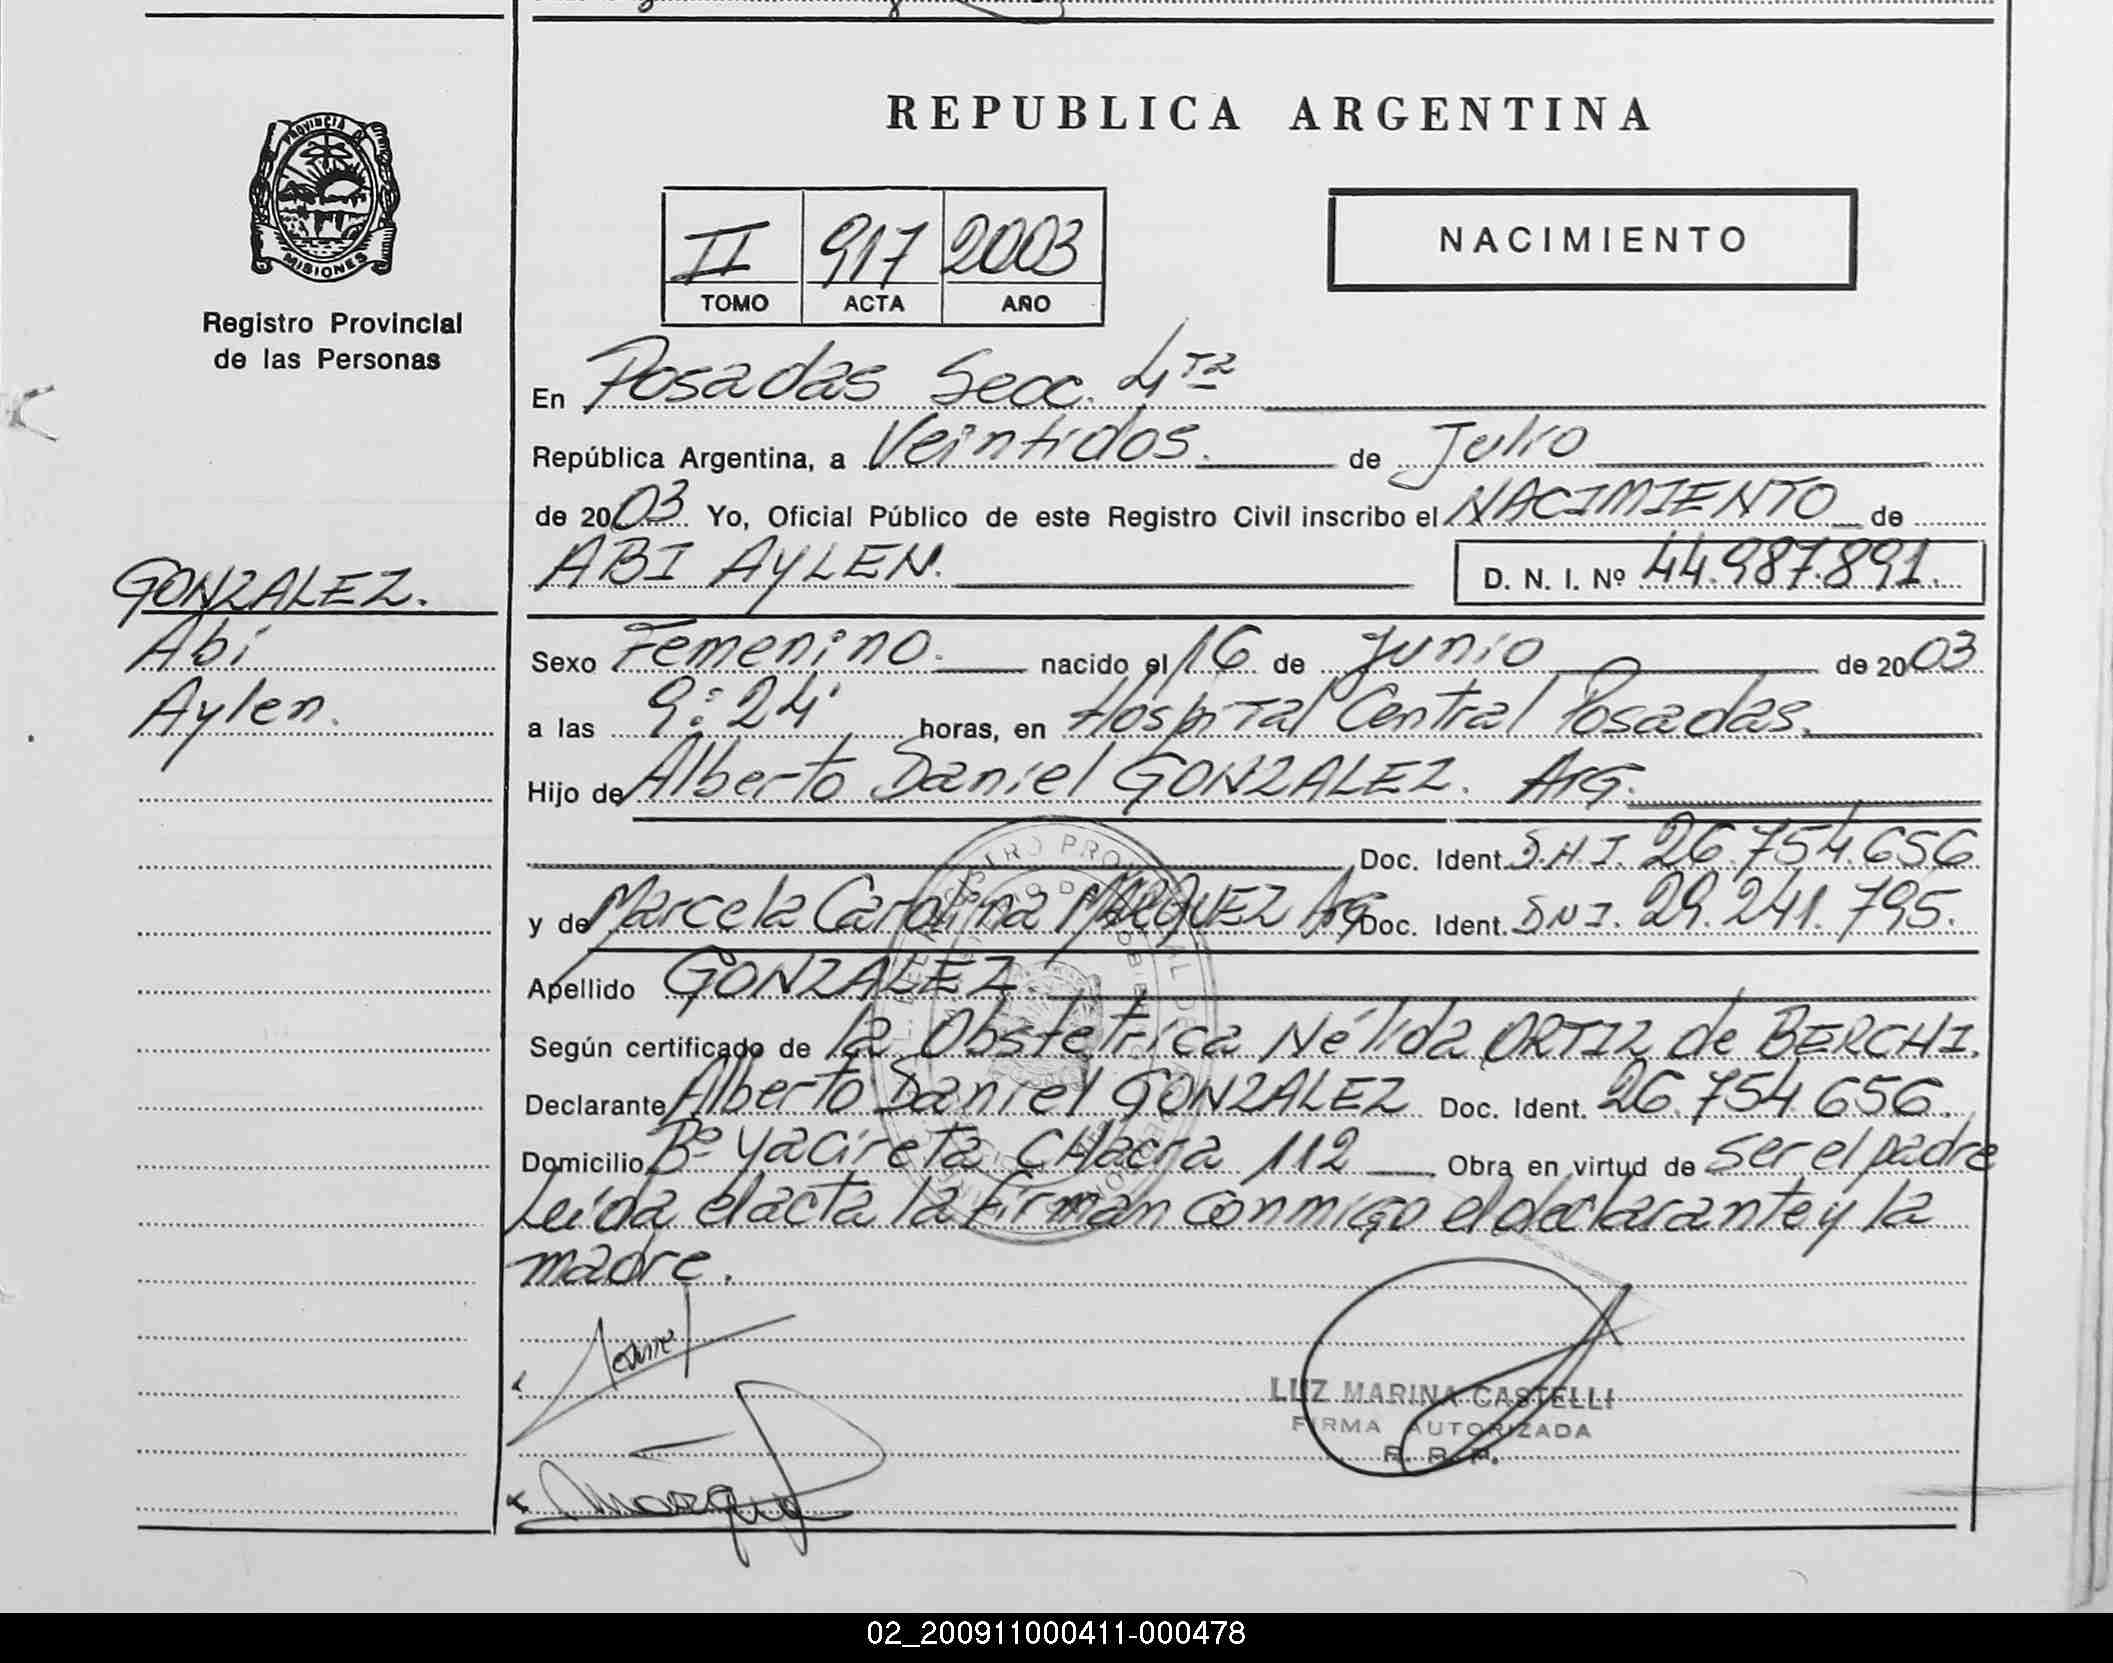 REPUBLICA ARGENTINA
PROVINCIA DE
MISIONES
Registro Provincial
de las Personas
II 917 2003
TOMO ACTA AÑO
NACIMIENTO
En Posadas Secc. 4ta
República Argentina, a Veintidos. de Julio
de 2003 Yo, Oficial Público de este Registro Civil inscribo el NACIMIENTO de
ABI AYLEN. D. N. I. Nº 44.987.891.
GONZALEZ.
Abi
Aylen.
Sexo Femenino. nacido el 16 de Junio de 2003
a las 9:24' horas, en Hospital Central Posadas.
Hijo de Alberto Daniel GONZALEZ. ArG.
Doc. Ident. D.N.I. 26.754.656
y de Marcela Carolina MARQUEZ ArG Doc. Ident. D.N.I. 29.241.795.
Apellido GONZALEZ
Según certificado de la Obstetrica Nélida ORTIZ de BERCHI.
Declarante Alberto Daniel GONZALEZ Doc. Ident. 26.754.656.
Domicilio Bº Yacireta CHacra 112 Obra en virtud de ser el padre
Leida el acta la firman conmigo el declarante y la
madre.
LUZ MARINA CASTELLI
FIRMA AUTORIZADA
R. R. P.
02_200911000411-000478